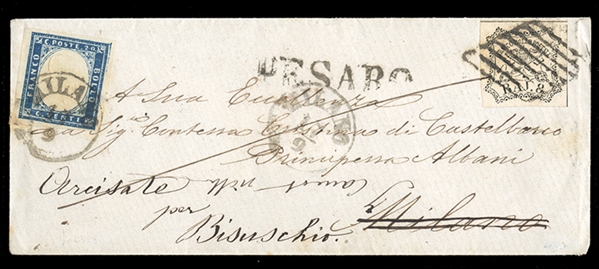 C. POSTE 20
FRANCO
BOLLO
C. VENTI
MILA
9
PESARO
BAJ. 8
A Sua Eccellenza
La Sig.ra Contessa Cristina di Castelbarco
Principessa Albani
Milano
Arcisate
per
Bisuschio.